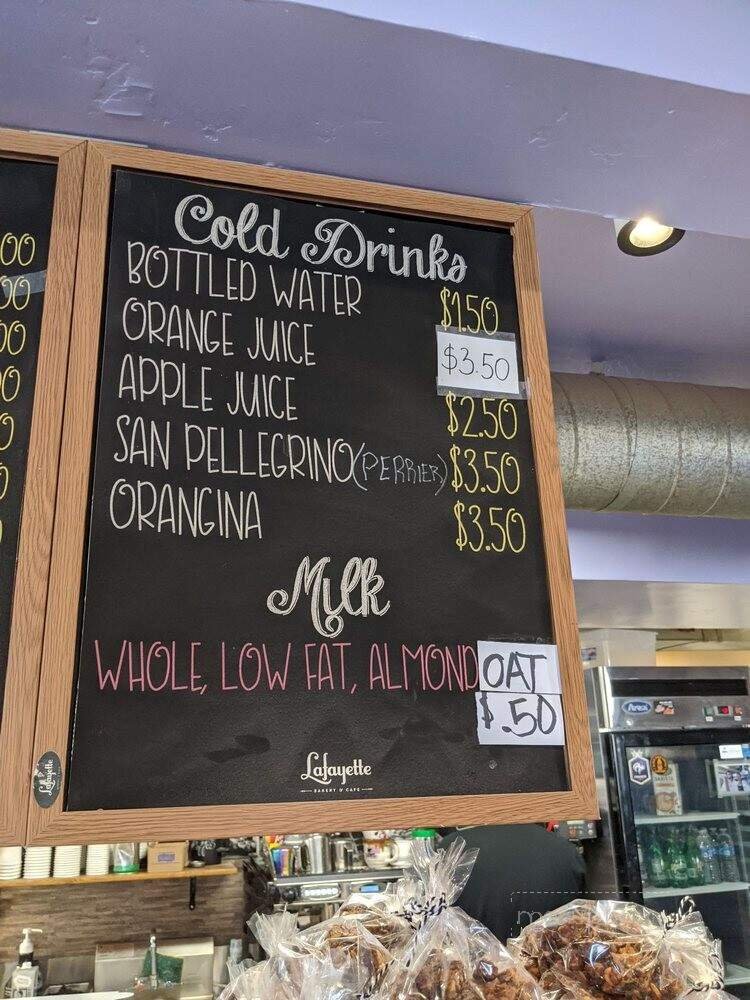 Cold Drinks
BOTTLED WATER $1.50
ORANGE JUICE $3.50
APPLE JUICE $2.50
SAN PELLEGRINO (PERRIER) $3.50
ORANGINA $3.50
Milk
WHOLE, LOW FAT, ALMOND OAT
$.50
Lafayette
BAKERY & CAFE
Lafayette
00
00
00
0
0
0